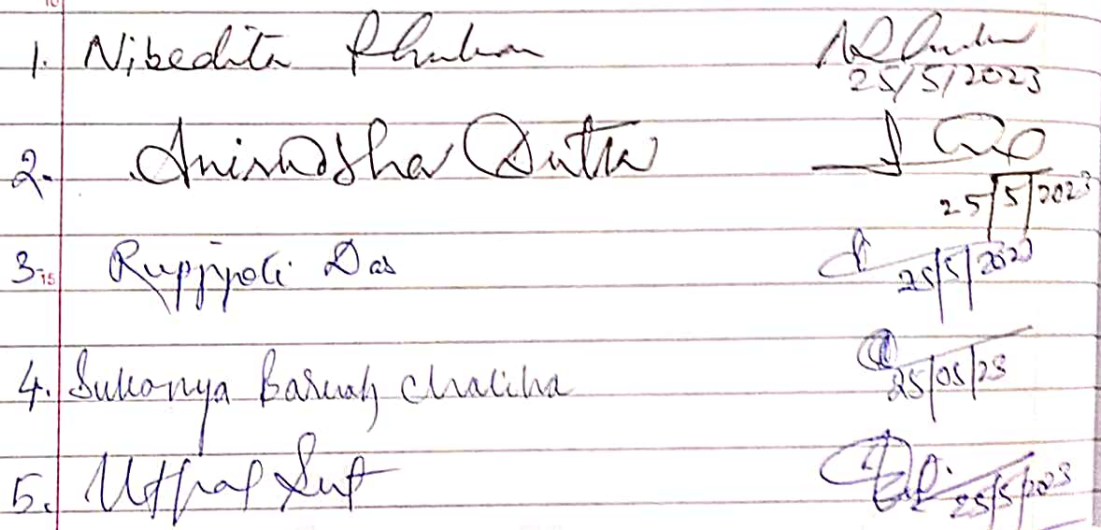 1. Nibedita Phukan
25/5/2023
2. Anirudha Dutta
25/5/2023
3. Rupjyoti Das
25/5/2023
4. Sukanya Baruah Chaliha
25/05/23
5. Utpal Sut
25/5/2023